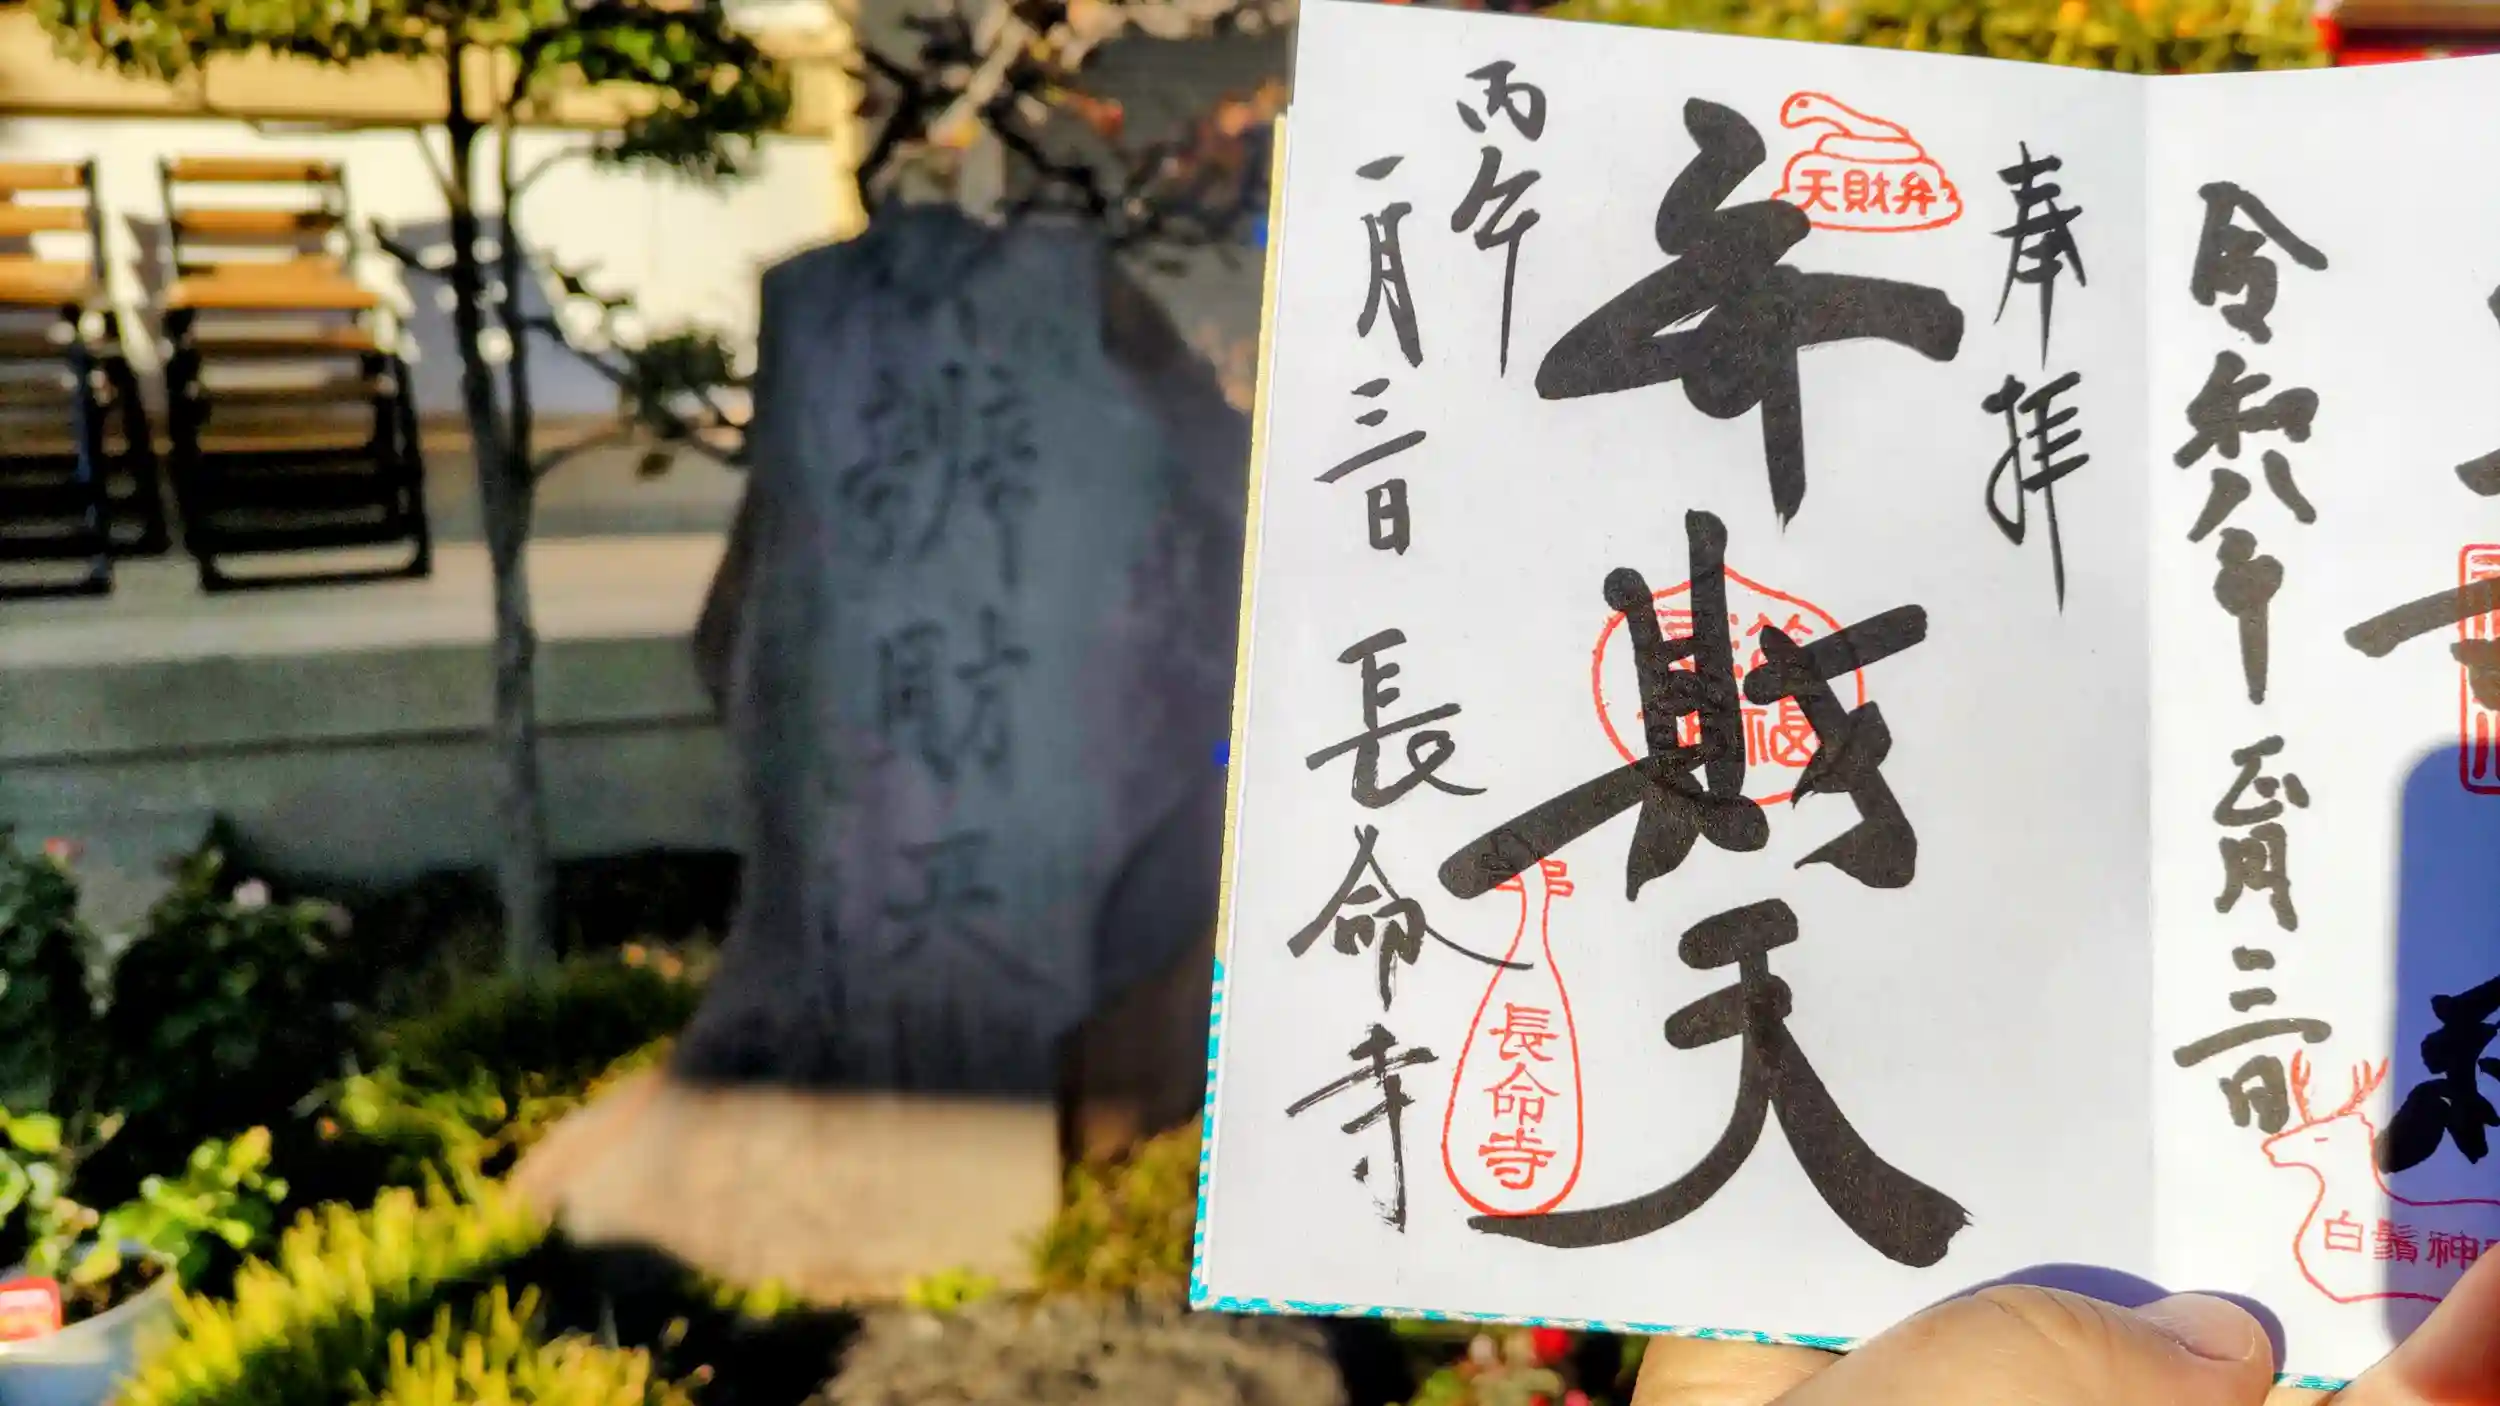 令和八年正月三日
白鬚神
奉拝
天財弁
弁財天
福
丙午
一月三日 長命寺
長命寺
辨財天